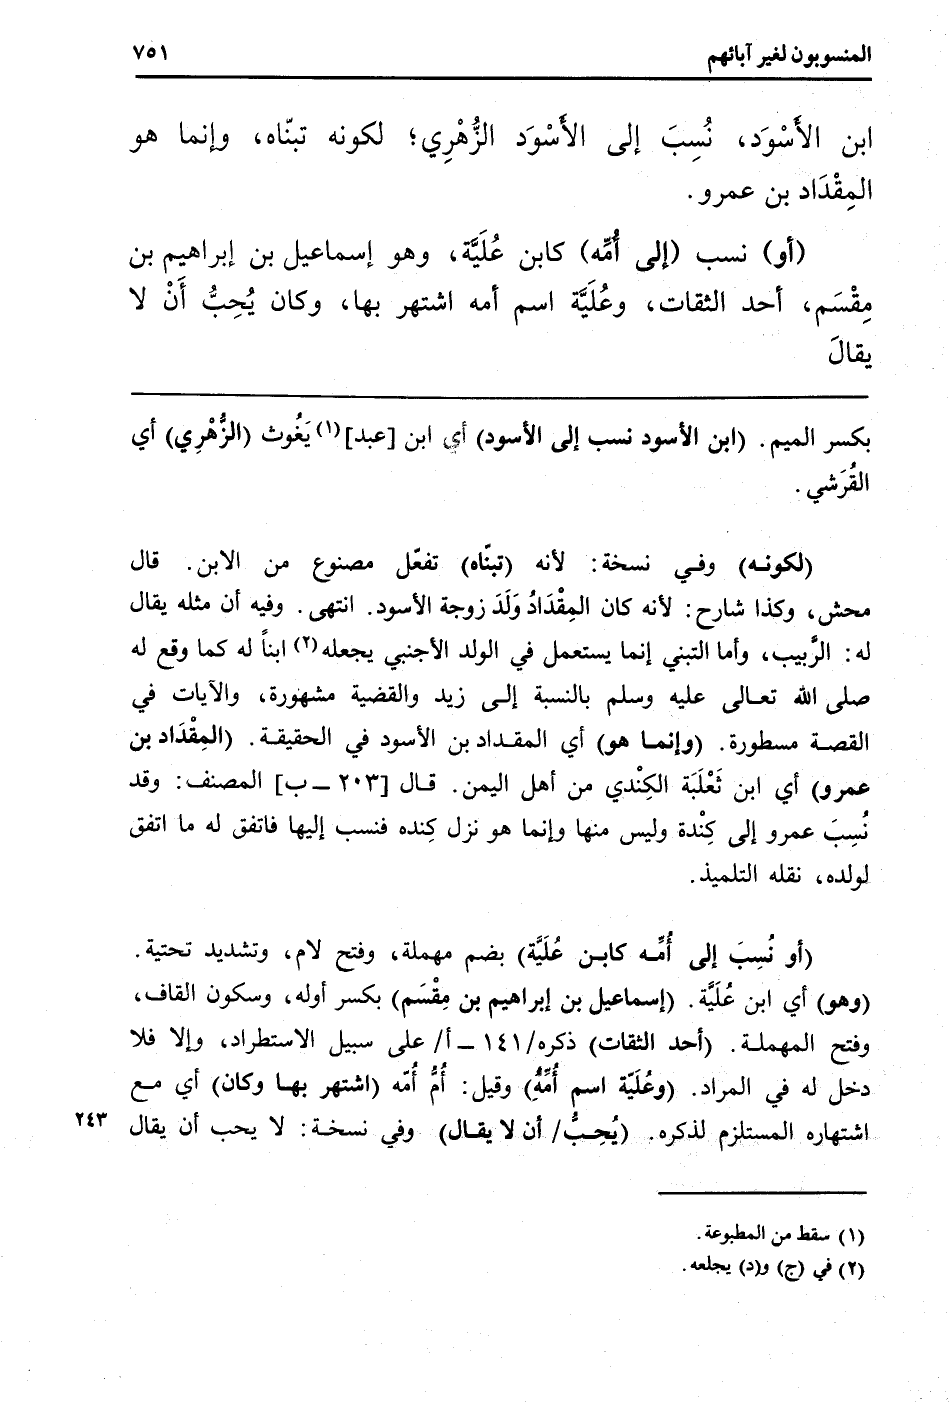 المنسوبون لغير آبائهم ٧٥١
ابن الأَسْوَد، نُسِبَ إلى الأَسْوَد الزُّهْرِي؛ لكونه تبنّاه، وإنما هو
المِقْدَاد بن عمرو.
(أو) نسب (إلى أُمِّه) كابن عُلَيَّة، وهو إسماعيل بن إبراهيم بن
مِقْسَم، أحد الثقات، وعُلَيَّة اسم أمه اشتهر بها، وكان يُحِبُّ أَنْ لا
يقالَ
بكسر الميم. (ابن الأسود نسب إلى الأسود) أي ابن [عبد](١) يَغُوث (الزُّهْرِي) أي
القُرَشي.
(لكونه) وفي نسخة: لأنه (تبنّاه) تفعّل مصنوع من الابن. قال
محش، وكذا شارح: لأنه كان المِقْدَادُ وَلَدَ زوجة الأسود. انتهى. وفيه أن مثله يقال
له: الرَّبيب، وأما التبني إنما يستعمل في الولد الأجنبي يجعله(٢) ابناً له كما وقع له
صلى الله تعالى عليه وسلم بالنسبة إلى زيد والقضية مشهورة، والآيات في
القصة مسطورة. (وإنما هو) أي المقداد بن الأسود في الحقيقة. (المِقْدَاد بن
عمرو) أي ابن ثَعْلَبَة الكِنْدي من أهل اليمن. قال [٢٠٣ – ب] المصنف: وقد
نُسِبَ عمرو إلى كِنْدة وليس منها وإنما هو نزل كِنده فنسب إليها فاتفق له ما اتفق
لولده، نقله التلميذ.
(أو نُسِبَ إلى أُمِّه كابن عُلَيَّة) بضم مهملة، وفتح لام، وتشديد تحتية.
(وهو) أي ابن عُلَيَّة. (إسماعيل بن إبراهيم بن مِقْسَم) بكسر أوله، وسكون القاف،
وفتح المهملة. (أحد الثقات) ذكره/١٤١ – أ/ على سبيل الاستطراد، وإلا فلا
دخل له في المراد. (وعُلَيّة اسم أُمِّهُ) وقيل: أُمُّ أُمّه (اشتهر بها وكان) أي مع
اشتهاره المستلزم لذكره. (يُحِبُّ/ أن لا يقال) وفي نسخة: لا يحب أن يقال ٢٤٣
(١) سقط من المطبوعة.
(٢) في (ج) و(د) يجلعه.